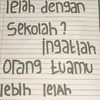 lelah dengan
sekolah?
ingatlah
orang tuamu
lebih lelah